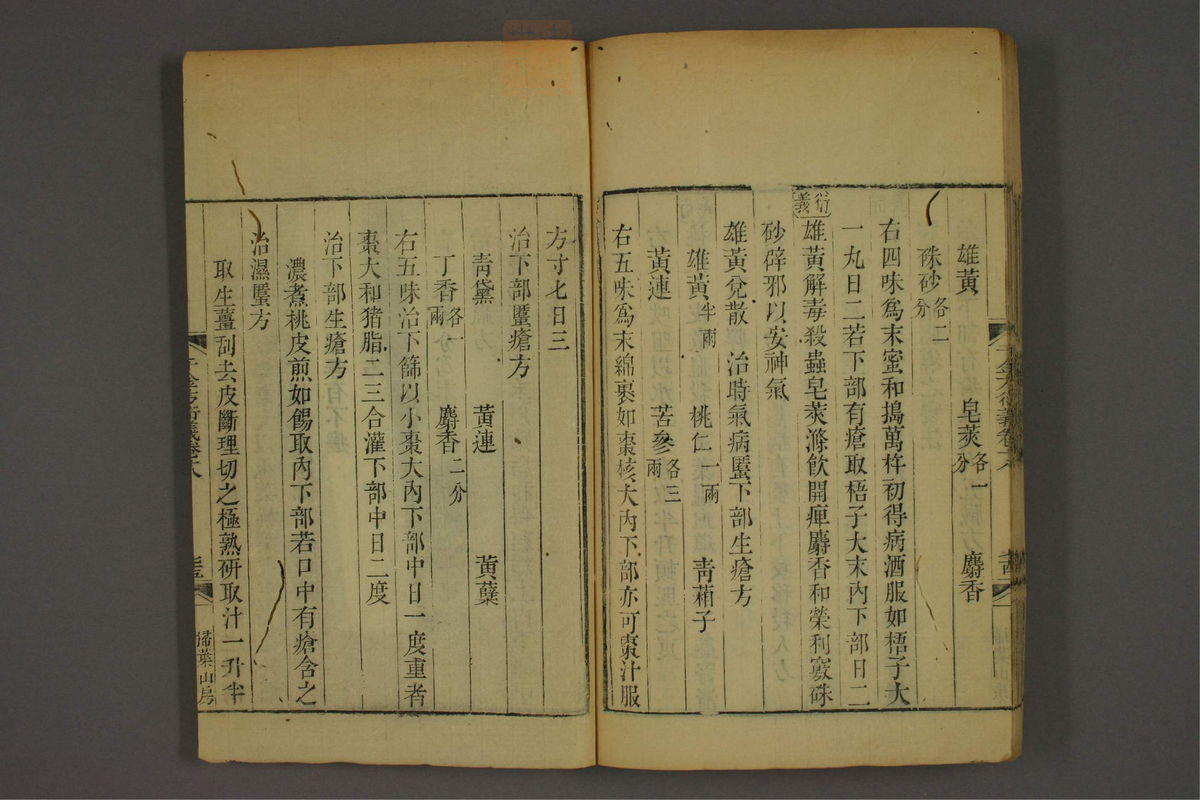 雄黃 皂莢各一分 麝香
硃砂各二分
右四味爲末蜜和搗萬杵初得病酒服如梧子大
一丸日二若下部有瘡取梧子大末內下部日二
衍義 雄黃解毒殺蟲皂莢滌飲開痺麝香和榮利竅硃
砂辟邪以安神氣
雄黃兌散 治時氣病䘌下部生瘡方
雄黃半兩 桃仁一兩 青葙子
黃連 苦參各三兩
右五味爲末綿裹如棗核大內下部亦可棗汁服
千金方衍義卷十八 十四
方寸匕日三
治下部䘌瘡方
青黛 黃連 黃蘗
丁香各一兩 麝香二分
右五味治下篩以小棗大內下部中日一度重者
棗大和猪脂二三合灌下部中日二度
治下部生瘡方
濃煮桃皮煎如餳取內下部若口中有瘡含之
治濕䘌方
取生薑刮去皮斷理切之極熟研取汁一升半
千金方衍義卷十八 十五 掃葉山房